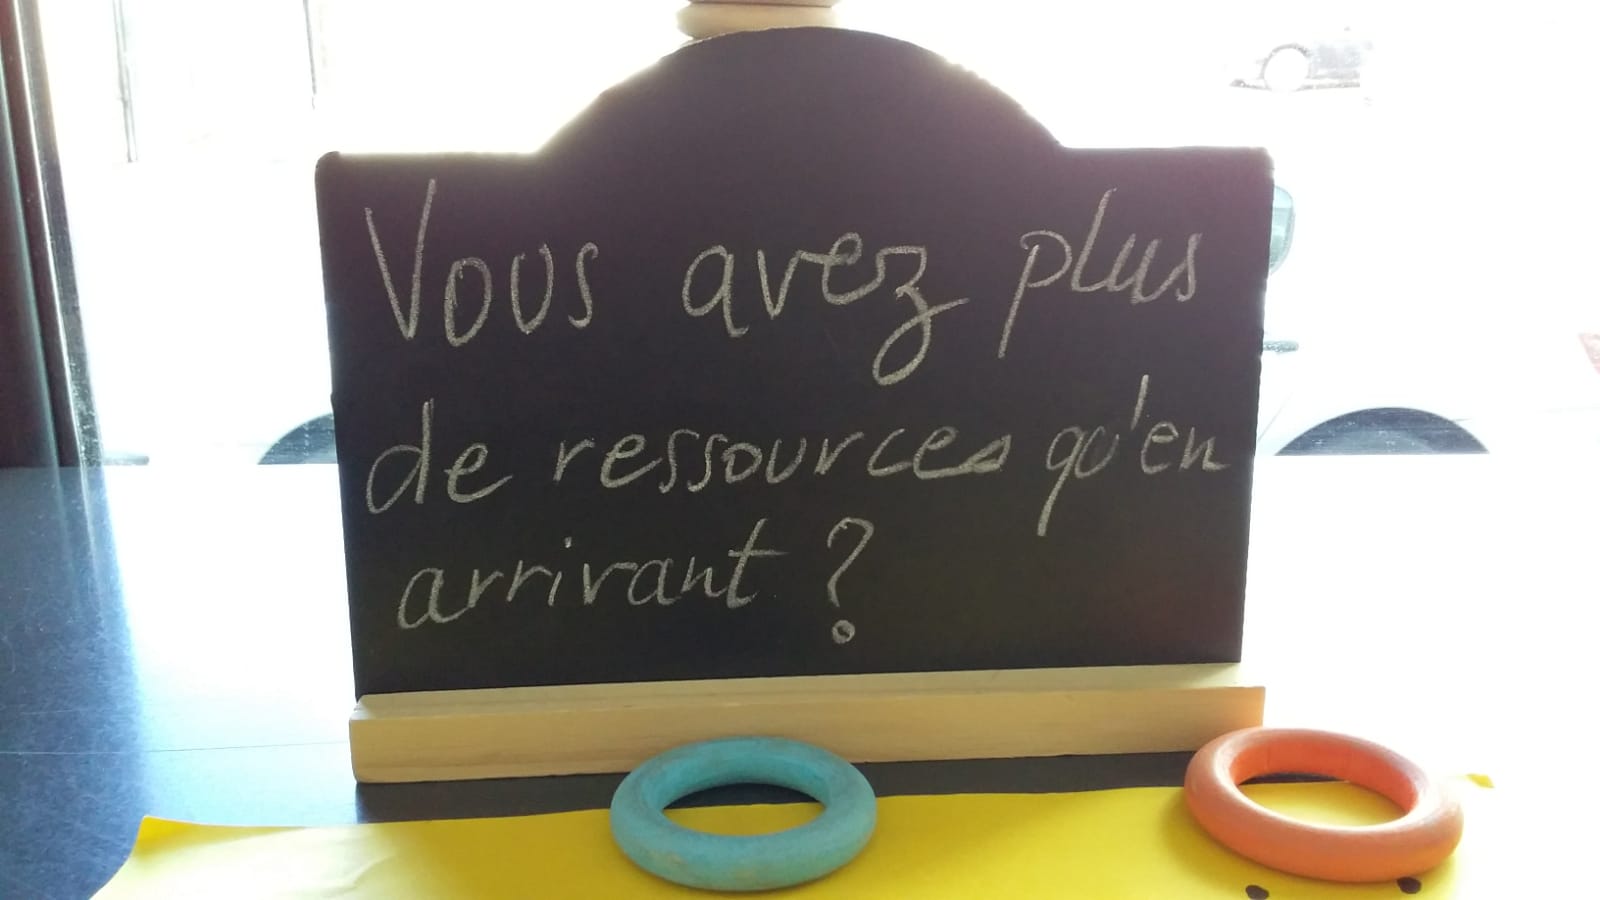 Vous avez plus
de ressources qu'en
arrivant ?